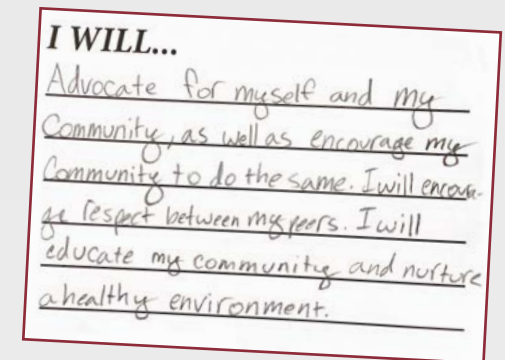 I WILL...
Advocate for myself and my
Community, as well as encourage my
Community to do the same. I will encoura-
ge respect between my peers. I will
educate my community and nurture
a healthy environment.